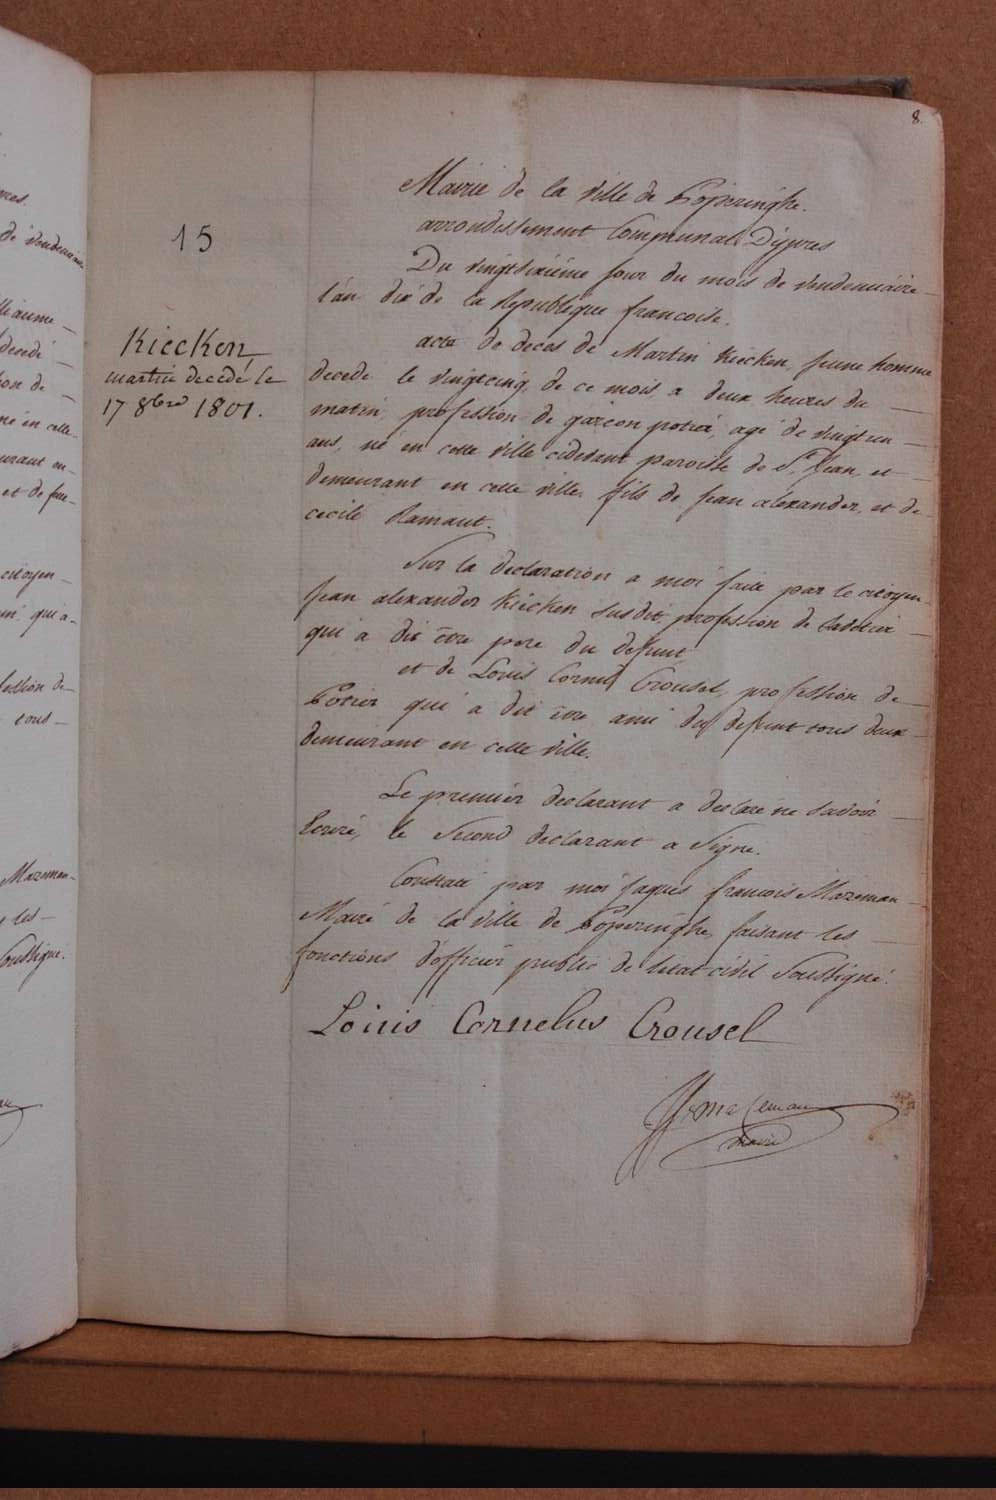 8.
15
Kiecken,
martin decedé le
17 8bre 1801.
Mairie de la ville de Poperinghe.
arrondissement Communal D'ypres
Du vingtsixième jour du mois de vendemiaire
l'an dix de la Republique francoise.
acte de deces de Martin Kiecken, jeune homme
decedé le vingtcinq de ce mois, a deux heures du
matin, profession de garçon potier, agé de vingt un
ans, né en cette ville cidevant paroisse de St. Jean, et
demeurant en cette ville. fils de jean alexander, et de
cecile Ramaut.
Sur la declaration a moi faite par le citoyen
Jean alexander Kiecken susdit, profession de
qui a dit être pere du defunt
et de Louis Cornil Crousel, profession de
Potier qui a dit être ami du defunt tous deux
demeurant en cette ville.
Le premier declarant a declaré ne savoir
Ecrire, le Second declarant a Signé.
Constaté par moi jaques francois Mazeman
Maire de la ville de Poperinghe, faisant les
fonctions d'officier public de l'etat civil Soussigné.
Louis Cornelus Crousel
Mazeman
maire